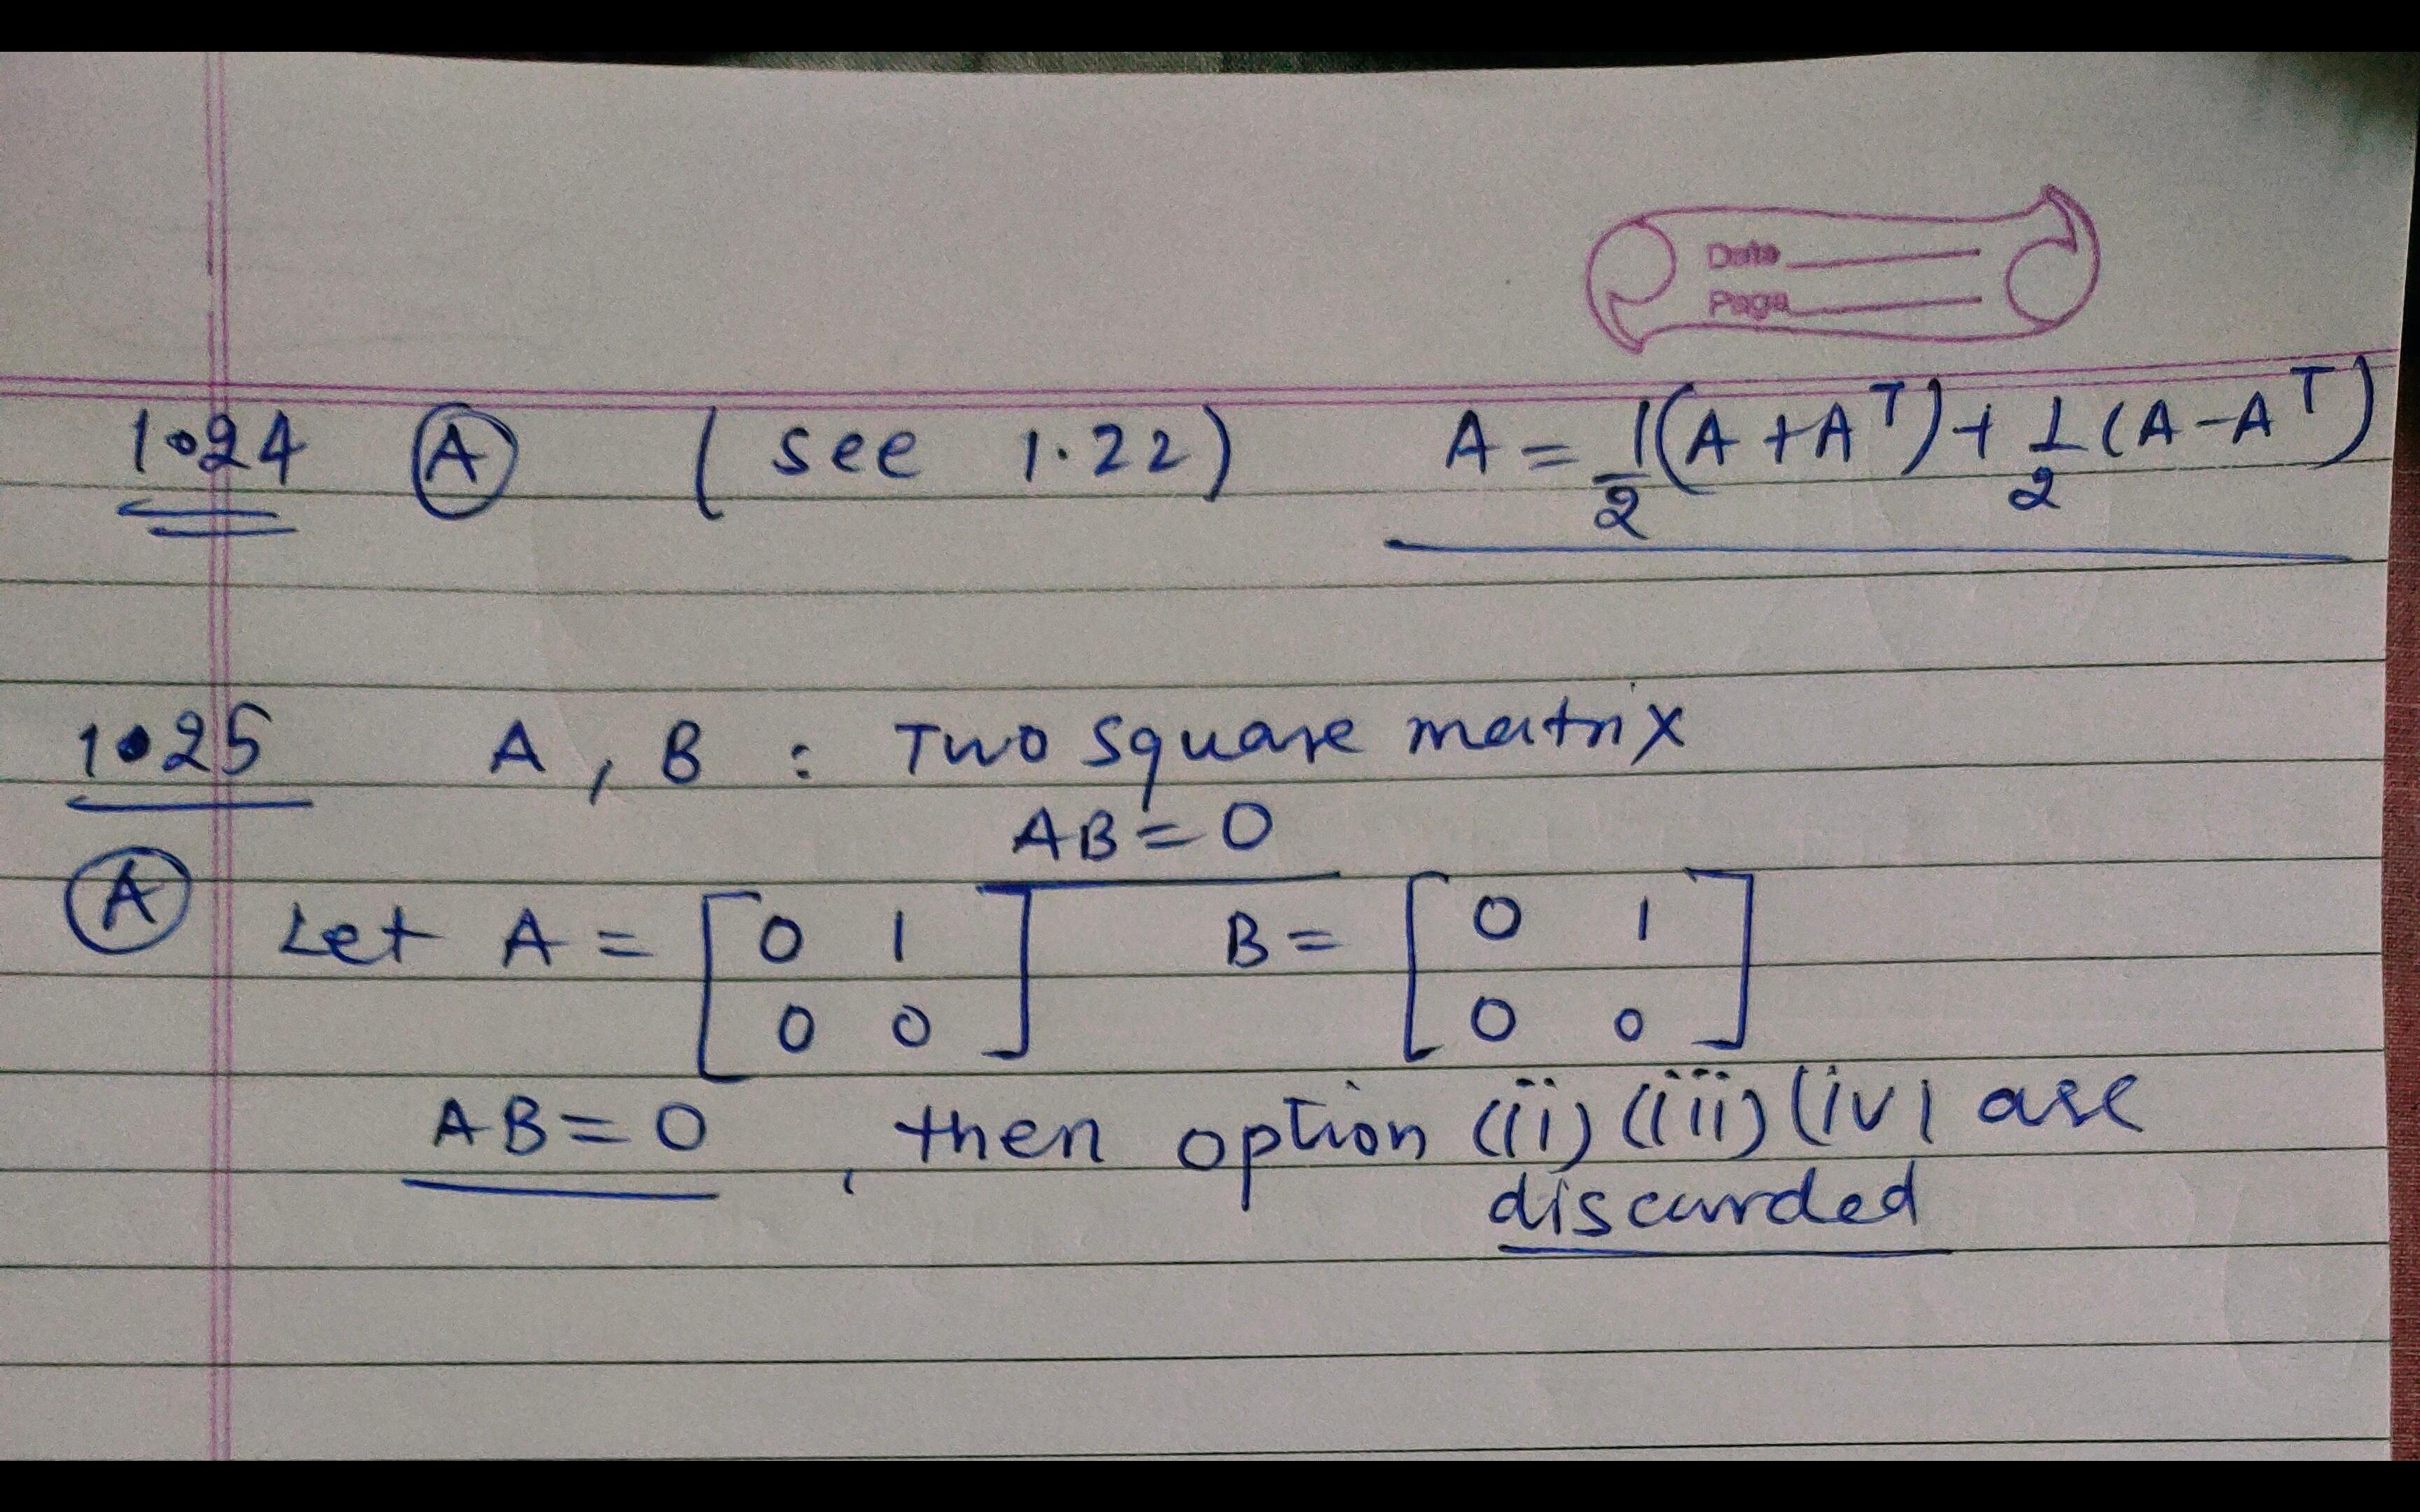 Date
Page
1.24 (A) (see 1.22) A = 1/2(A + A^T) + 1/2(A - A^T)
1.25 A, B : Two square matrix
AB = 0
(A) Let A = [0 1
0 0] B = [0 1
0 0]
AB = 0, then option (ii) (iii) (iv) are
discarded